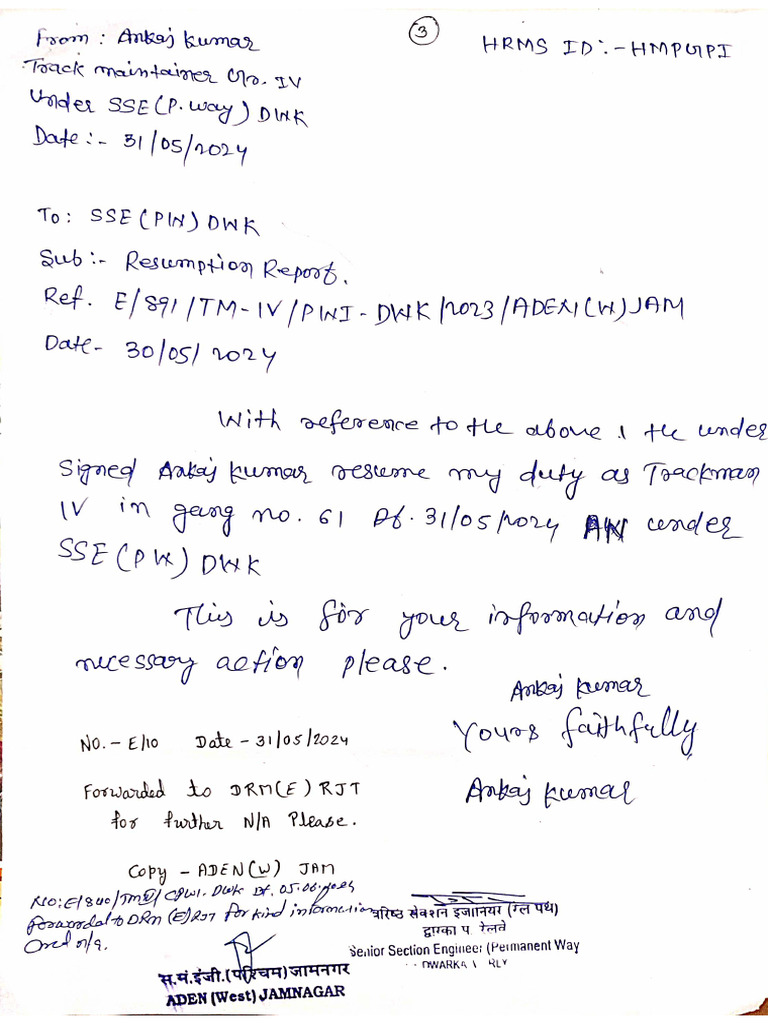 3
From : Ankaj Kumar
HRMS ID :- HMPGPI
Track maintainer Gr. IV
Under SSE (P. way) DWK
Date :- 31/05/2024
To : SSE (PW) DWK
Sub :- Resumption Report.
Ref. E/891/TM-IV/PWI-DWK/2023/ADEN(W)JAM
Date - 30/05/2024
With reference to the above I the under
Signed Ankaj Kumar resume my duty as Trackman
IV in gang no. 61 Dt. 31/05/2024 under
SSE (PW) DWK
This is for your information and
necessary action please.
Ankaj Kumar
Yours faithfully
Ankaj Kumar
NO. - E/10 Date - 31/05/2024
Forwarded to DRM(E) RJT
for further N/A Please.
Copy - ADEN(W) JAM
NO: E/840/ DWK Dt. 05.06.2024
forwarded to DRM (E) RJT for kind information
and n/a.
वरिष्ठ सेक्शन इंजीनियर (रेल पथ)
द्वारका प. रेलवे
Senior Section Engineer (Permanent Way
DWARKA RLY
स.मं.इंजी.(पश्चिम)जामनगर
ADEN (West) JAMNAGAR